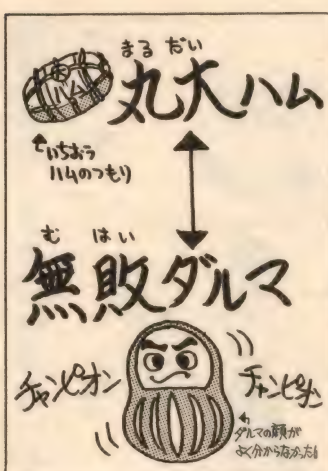 まるだい
丸大ハム
ハム
↑いちおう
ハムのつもり
むはい
無敗ダルマ
チャンピオン
チャンピオン
↑ダルマの顔が
よく分からなかった!